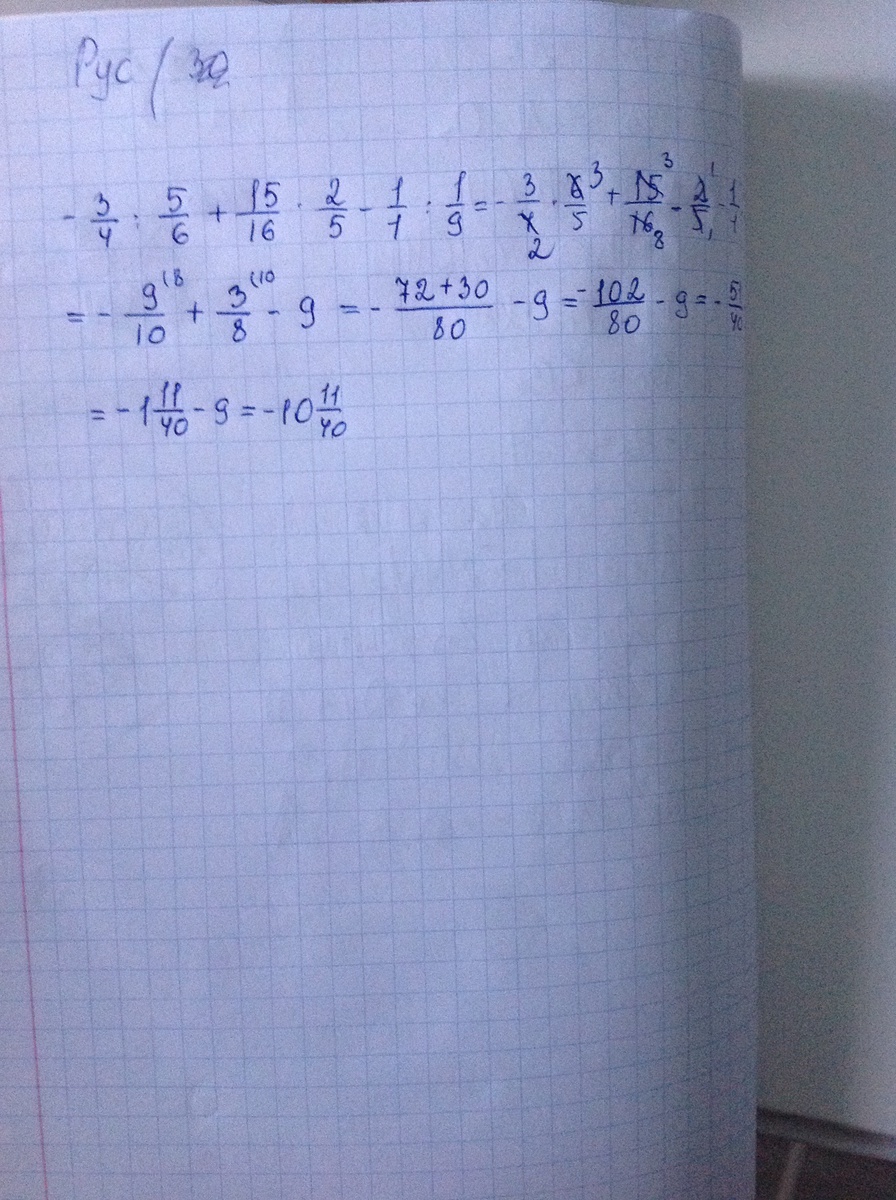 Рус /
- 3/4 : 5/6 + 15/16 · 2/5 - 1/1 : 1/9 = - 3/4 2 · 6 3/5 + 15 3/16 8 - 2 1/5 1 - 1/1
= - 9(8/10 + 3(10/8 - 9 = - 72+30/80 - 9 = - 102/80 - 9 = - 51/40
= - 1 11/40 - 9 = - 10 11/40